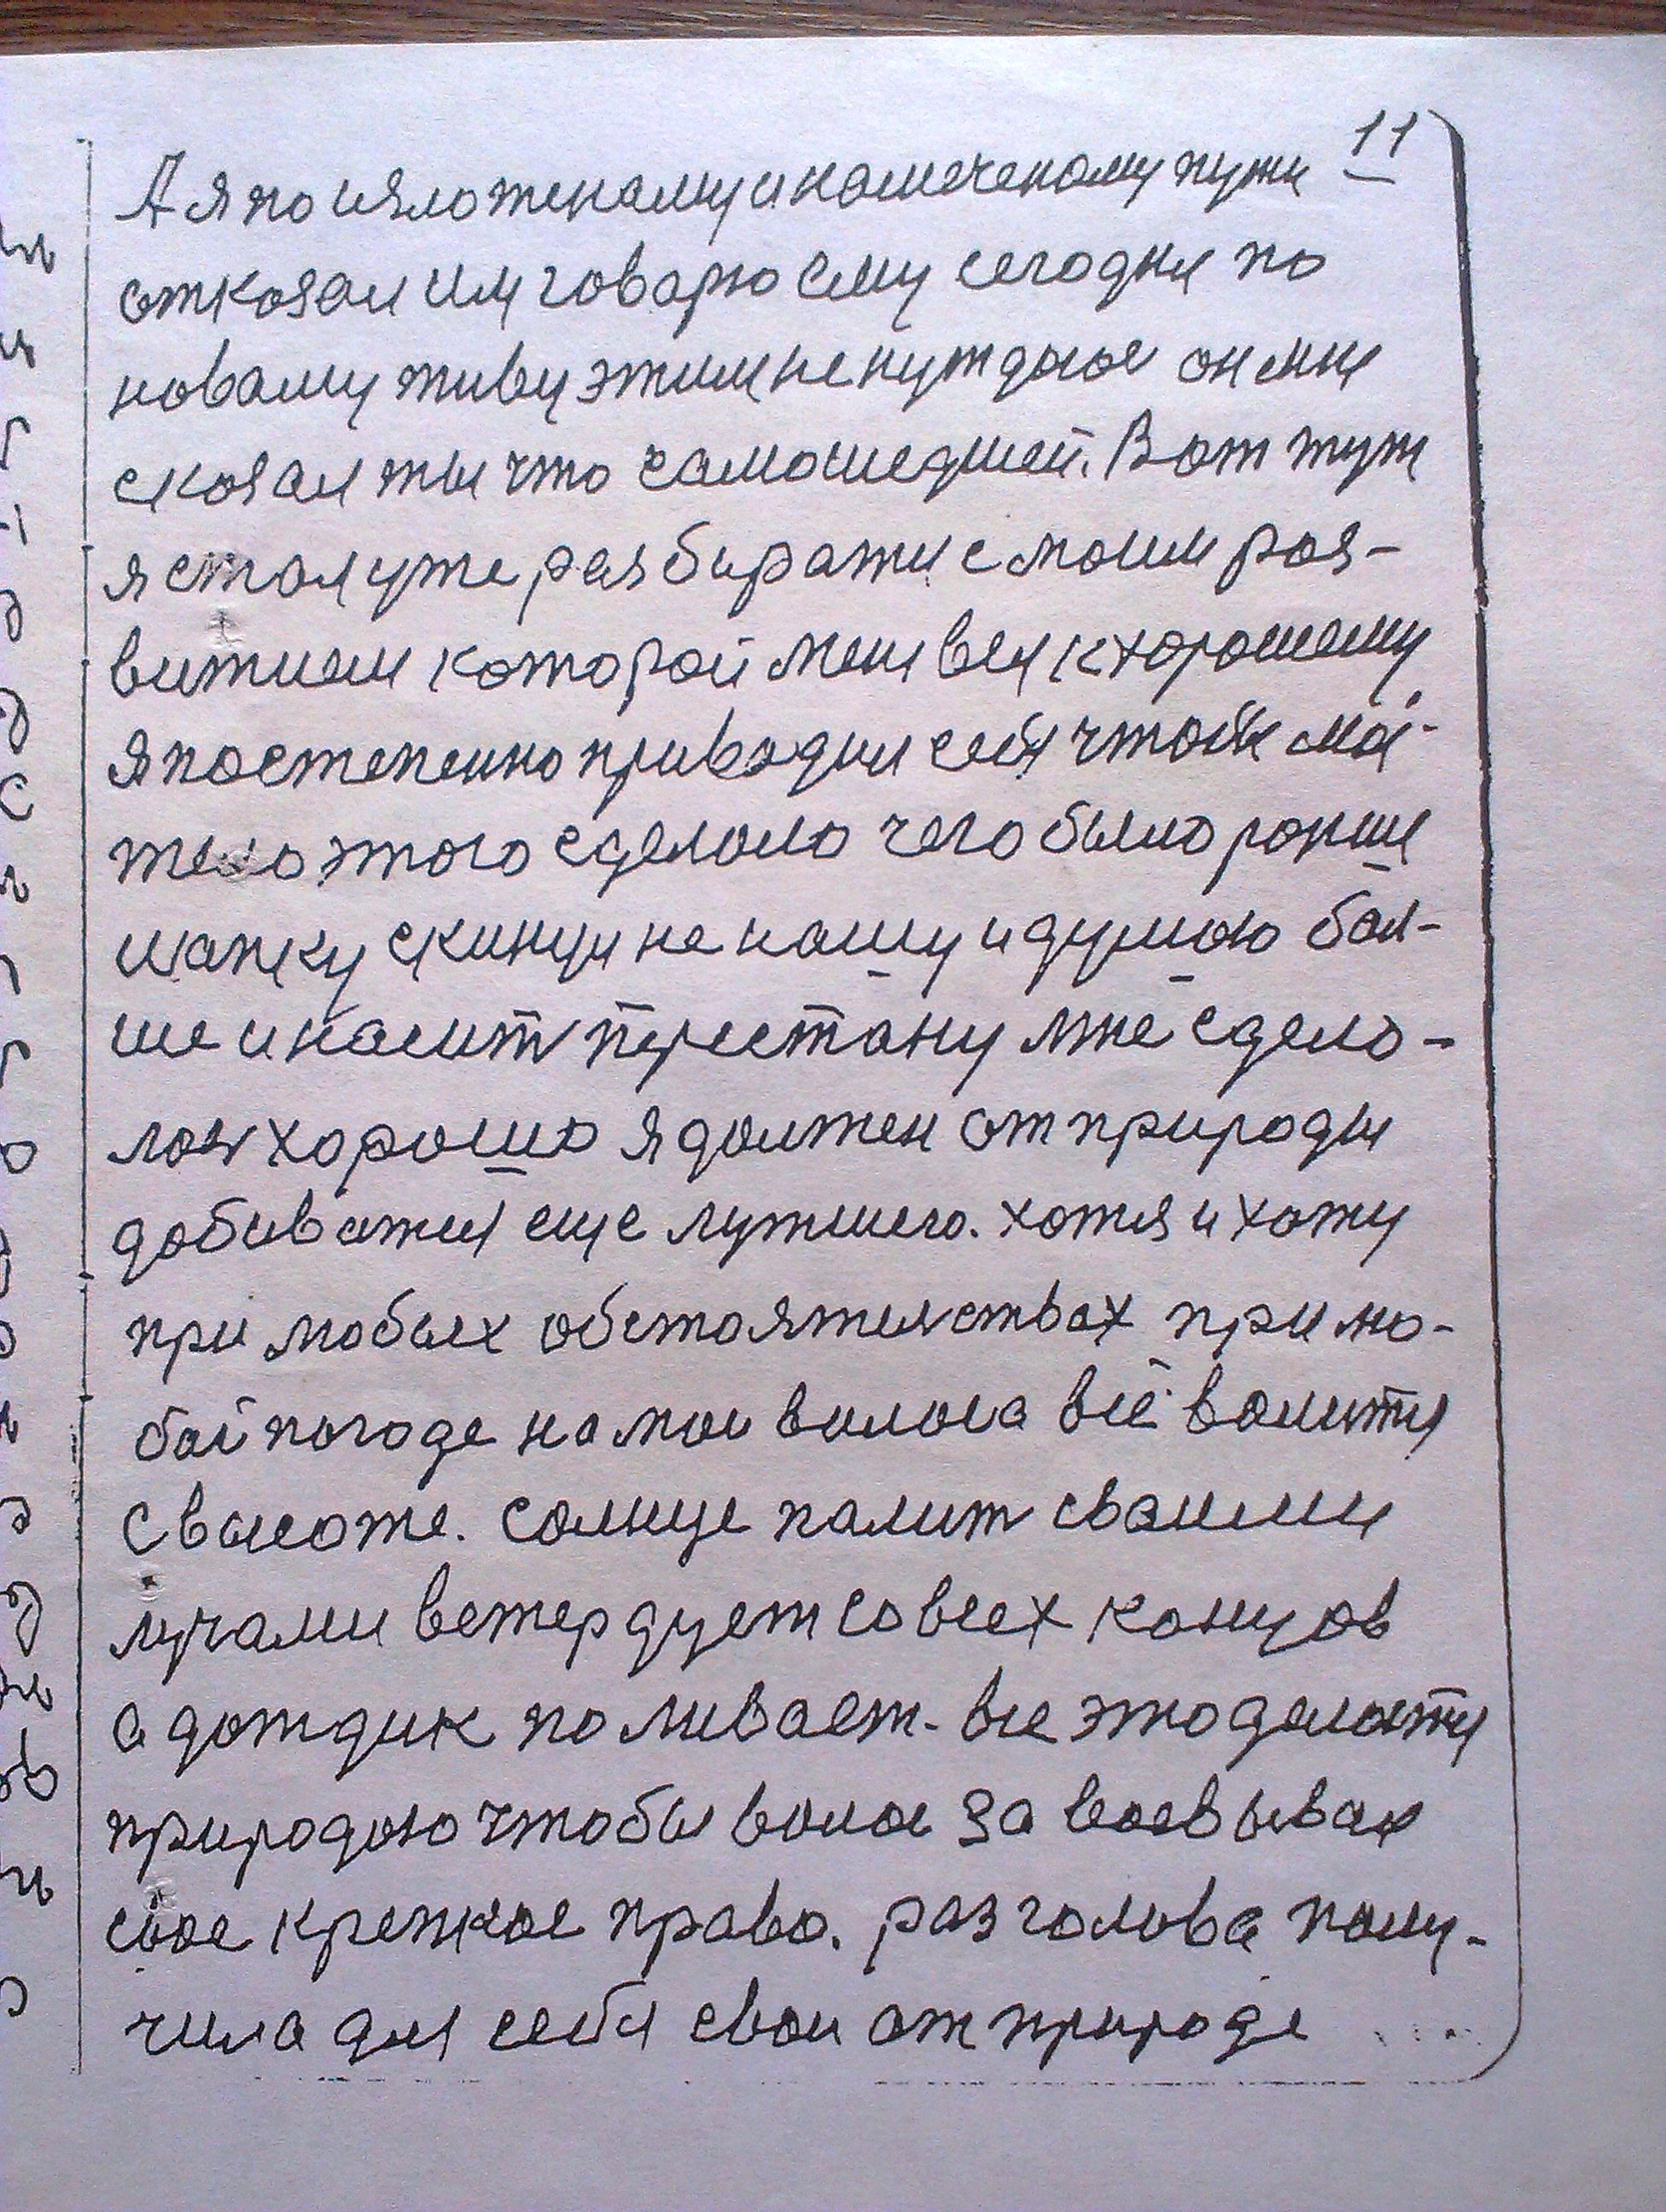 11
А я по изложенаму и намеченому пути
отказал им говарю ему сегодня по
новаму живу этим не нуждаюс он мне
сказал ты что самошедшей. Вот тут
я стал уже разбиратис с моим раз-
витием каторой меня вел к харошему
я постепенно приводил себя чтобы маё
тело этого сделало чего было раньше
шапку скинул не нашу и думаю бол-
ше и насит перестану мне сдела-
лос хорошо я должен от природы
добиватися еще лутшего. хотя и хожу
при любых обстоятелствах при лю-
бой погоде на мои волоса всё валится
с высоте. солнце палит сваими
лучами ветер дует со всех концов
а дождик паливает. все это делается
природою чтобы волос завоевывал
свое крепкое право. раз голова палу-
чила для себя свои от природе